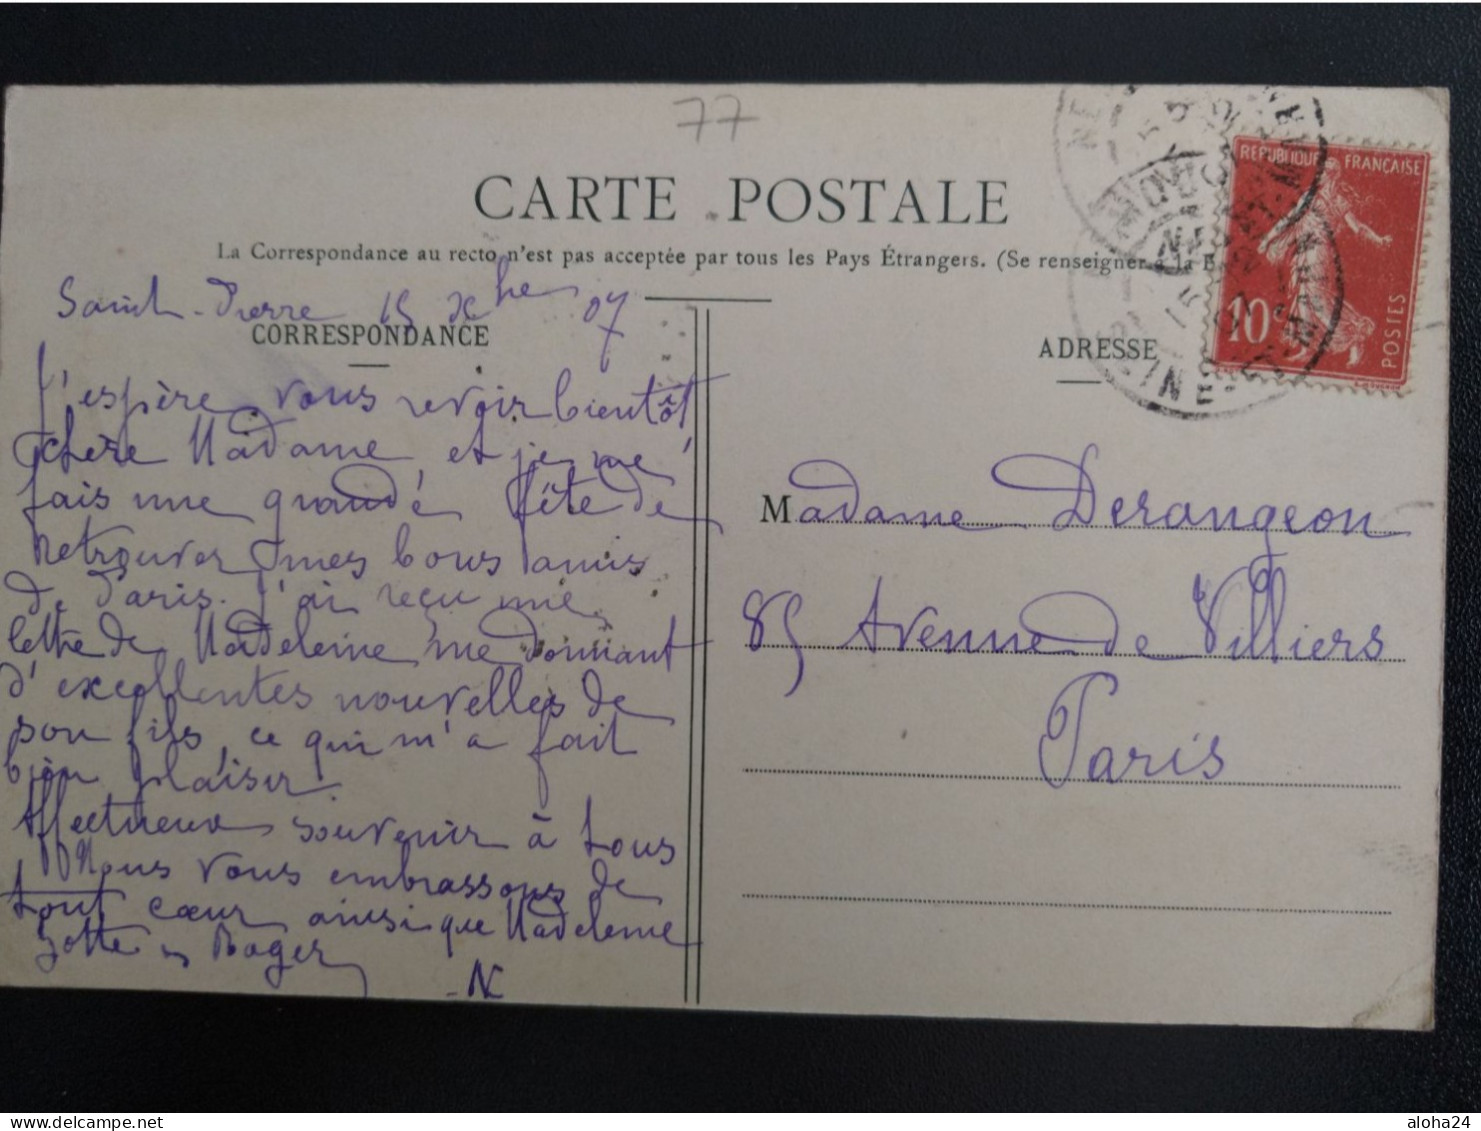 77
CARTE POSTALE
La Correspondance au recto n'est pas acceptée par tous les Pays Étrangers. (Se renseigner à la
Saint-Pierre 15 Xbre 07
CORRESPONDANCE
J'espère vous revoir bientôt
chère Madame et je me
fais une grande fête de
retrouver mes bons amis
de Paris. J'ai reçu une
lettre de Madeleine me donnant
d'excellentes nouvelles de
son fils, ce qui m'a fait
bien plaisir.
Affectueux souvenir à tous
Nous vous embrassons de
tout cœur ainsi que Madeleine
Roger
ADRESSE
RÉPUBLIQUE FRANÇAISE
10
POSTES
SEINE-ET-MARNE
Madame Derangeon
85 Avenue de Villiers
Paris
aloha24